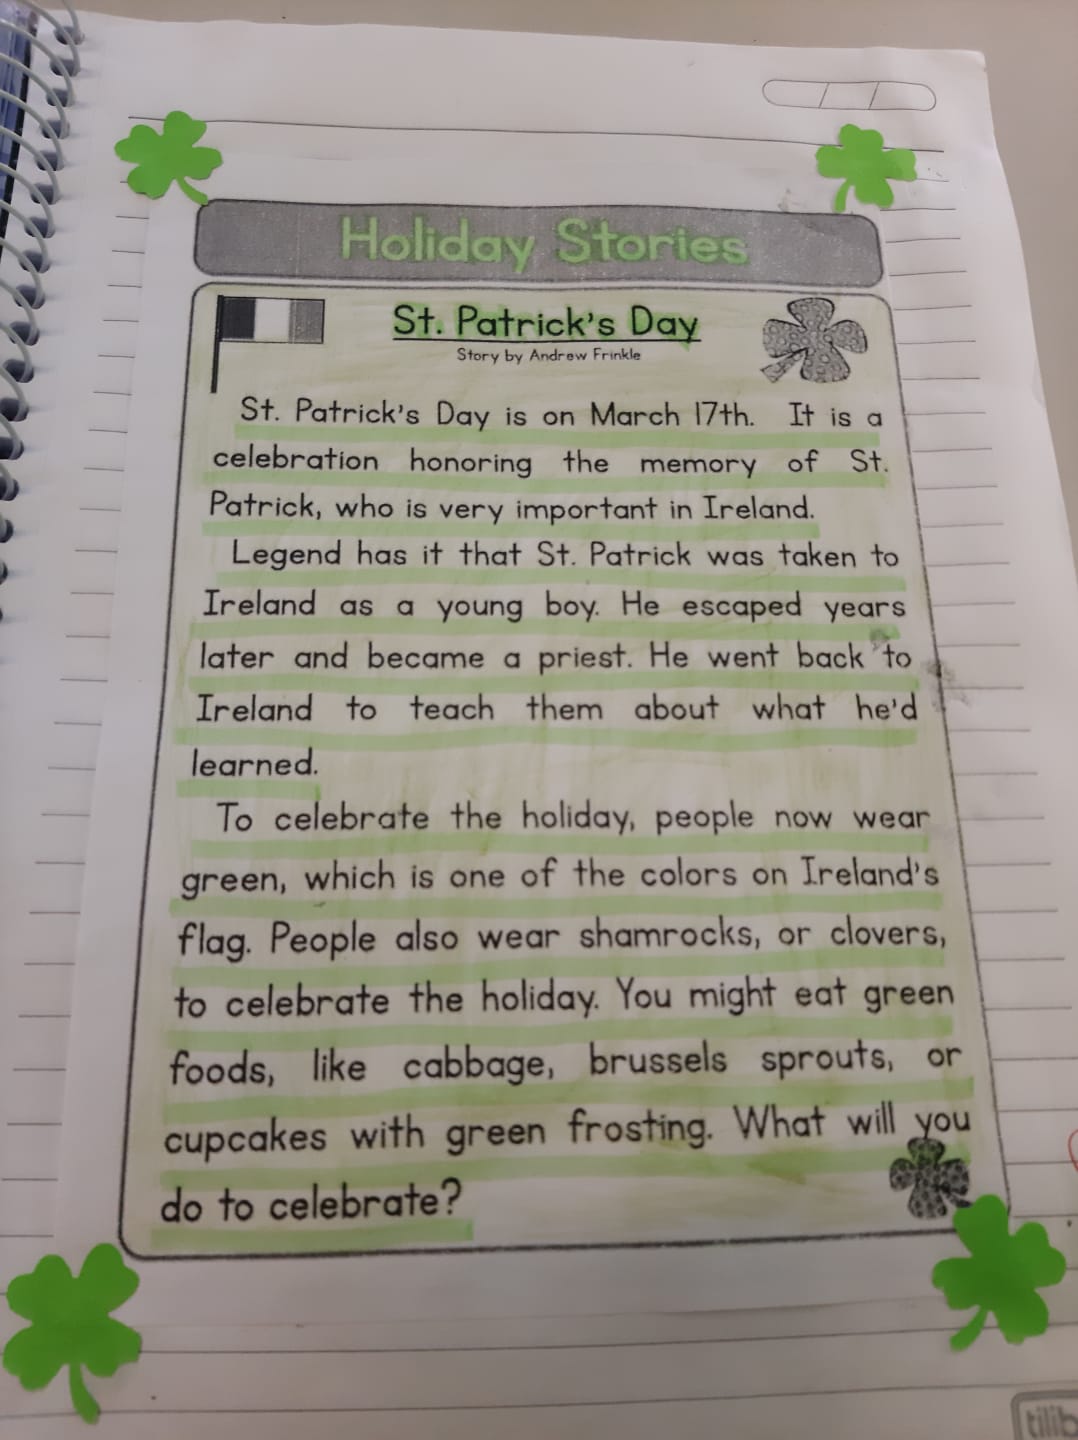 Holiday Stories
St. Patrick's Day
Story by Andrew Frinkle
St. Patrick's Day is on March 17th. It is a
celebration honoring the memory of St.
Patrick, who is very important in Ireland.
Legend has it that St. Patrick was taken to
Ireland as a young boy. He escaped years
later and became a priest. He went back to
Ireland to teach them about what he'd
learned.
To celebrate the holiday, people now wear
green, which is one of the colors on Ireland's
flag. People also wear shamrocks, or clovers,
to celebrate the holiday. You might eat green
foods, like cabbage, brussels sprouts, or
cupcakes with green frosting. What will you
do to celebrate?